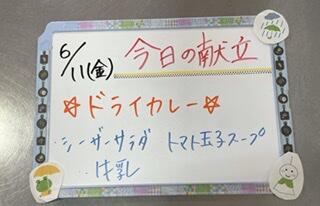 6/11(金) 今日の献立
☆ドライカレー☆
・シーザーサラダ トマト玉子スープ
・牛乳